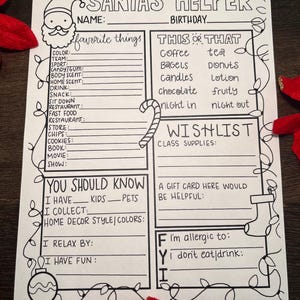 SANTAS HELPER
NAME: BIRTHDAY
favorite things
COLOR:
TEAM:
SPORT:
CANDY/GUM:
BODY SCENT:
HOME SCENT:
DRINK:
SNACK:
SIT DOWN
RESTAURANT:
FAST FOOD
RESTAURANT:
STORE:
CHIPS:
COOKIES:
BOOK:
MOVIE:
SHOW:
THIS OR THAT
coffee tea
Bagels Donuts
candles lotion
chocolate fruity
night in night out
WISHLIST
CLASS SUPPLIES:
A GIFT CARD HERE WOULD
BE HELPFUL:
YOU SHOULD KNOW
I HAVE KIDS PETS
I COLLECT
HOME DECOR STYLE/COLORS:
I RELAX BY:
I HAVE FUN:
FYI
I'm allergic to:
I don't eat/drink: